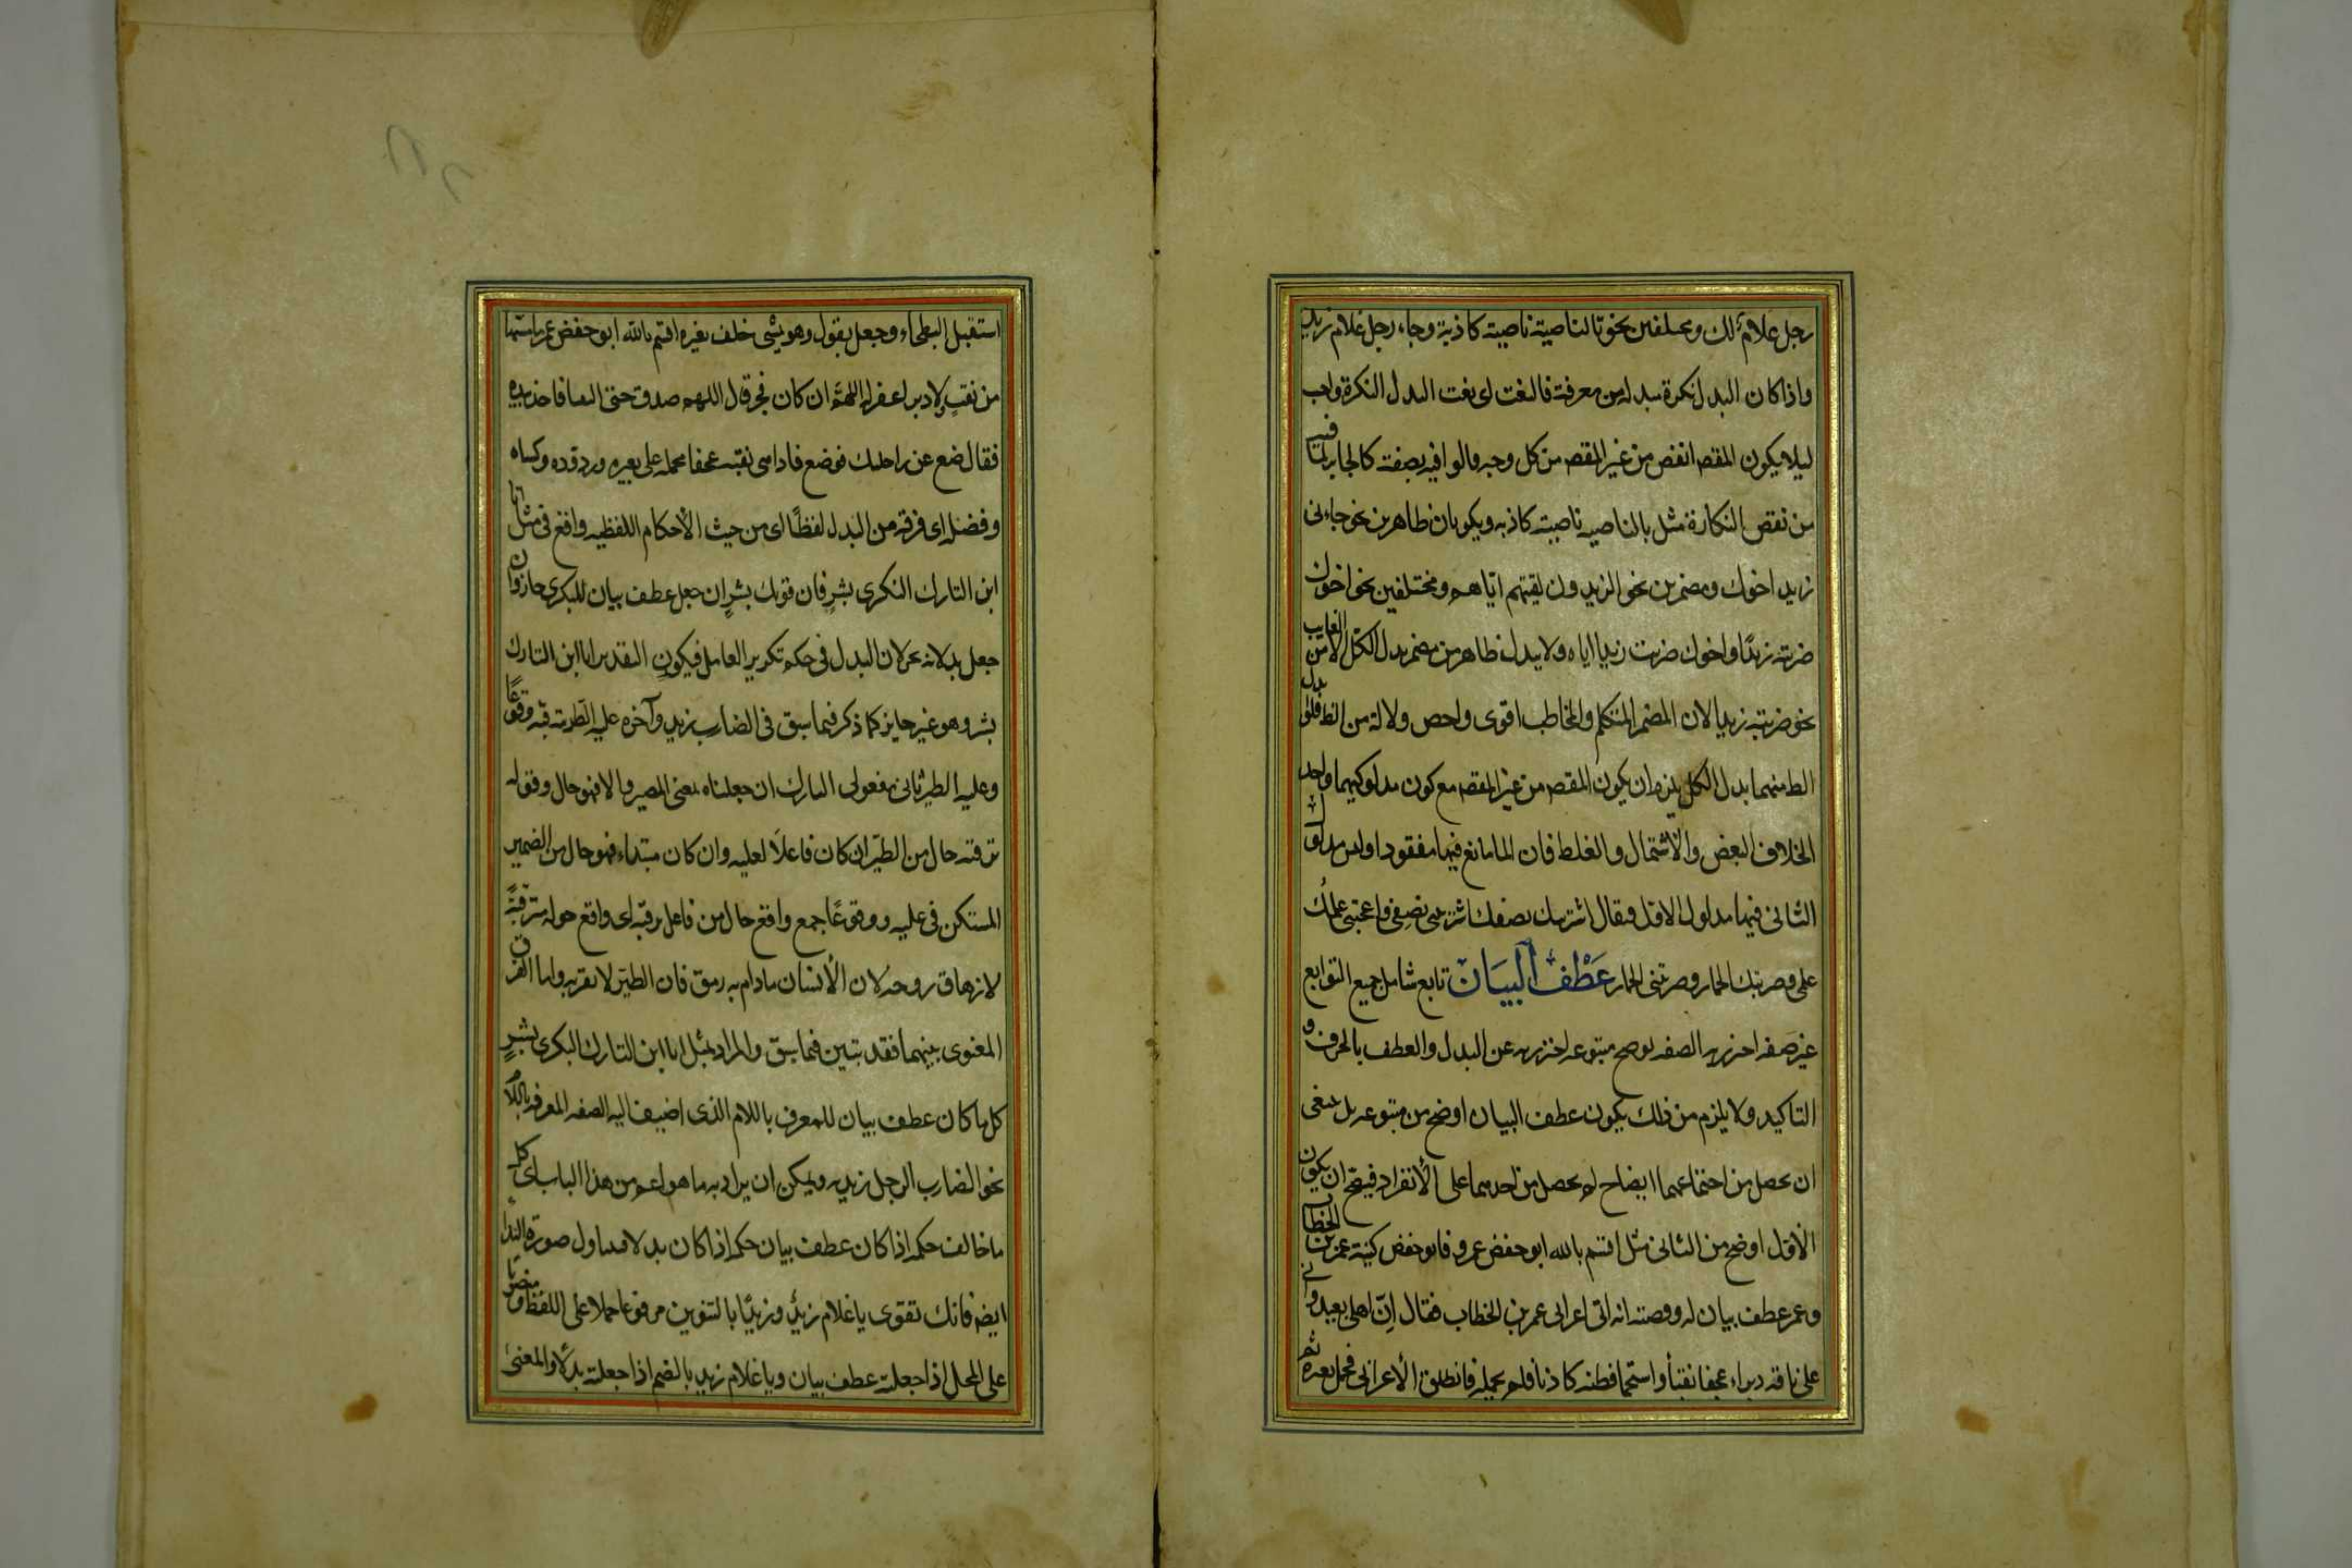 رجل غلام لك ومختلفين نحو بالناصية ناصية كاذبة وجاء رجل غلام زيد
واذا كان البدل نكرة مبدلة من معرفة فالنعت اى نعت البدل النكرة واجب
ليلا يكون المقصـ انقص من غير المقصـ من كل وجه فاتوا فيه بصفة كالجابر لما فيه
من نقص النكارة مثل بالناصيه ناصية كاذبه ويكونان ظاهرين نحو جاءنى
زيد اخوك ومضمرين نحو الزيدون لقيتهم اياهم ومختلفين نحو اخوك
ضربته زيدا واخوك ضربت زيدا اياه ولا يبدل ظاهر من مضمر بدل الكل الا من الغايب
نحو ضربته زيدا لان المضمر المتكلم والمخاطب اقوى واخص دلالة من الظ فلو بدل
الظ منهما بدل الكل يلزم ان يكون المقصـ من غير المقصـ مع كون مدلوليهما واحد
بخلاف البعض والاشتمال والغلط فان المانع فيها مفقود اوليس مدلول
الثانى فيها مدلول الاول فيقال اشتريتك نصفك اشتريتنى نصفى واعجبتنى علمك
على وضربتك الحمار وضربتنى الحمار عطف البيان تابع شامل جميع التوابع
غير صفه احترز به الصفه يوضح متبوعه احترز به عن البدل والعطف بالحرف و
التاكيد ولا يلزم من ذلك يكون عطف البيان اوضح من متبوعه بل ينبغى
ان يحصل من اجتماعهما ايضاح لم يحصل من احدهما على الانفراد فيصح ان يكون
الاول اوضح من الثانى مثل اقسم بالله ابو حفص عمر وفابو حفص كنية عمر بن الخطاب
وعمر عطف بيان له وقصته انه اتى اعرابى عمر بن الخطاب فقال ان اهلى بعيد وانى
على ناقة دبراء عجفا نقبا واستحمله فظنه كاذبا فلم يحمله فانطلق الاعرابى فحمل بعيره ثم
استقبل البطحاء وجعل يقول وهو يمشى خلف بعيره اقسم بالله ابو حفص عمر ما مسها
من نقب ولا دبر اغفر له اللهم ان كان فجر قال اللهم صدق حتى التقيا فاخذ بيده
فقال ضع عن راحلتك فوضع فاذا هى نقبه عجفا فحمله على بعير وزوده وكساه
وفصله اى فرقه من البدل لفظا اى من حيث الاحكام اللفظيه واقع فى مثل انا
ابن التارك البكرى بشر فان قولك بشر ان جعل عطف بيان للبكرى جاز وان
جعل بدلا لم يجز لان البدل فى حكم تكرير العامل فيكون التقدير انا ابن التارك
بشر وهو غير جايز كما ذكر فيما سبق فى الضارب زيد وآخره عليه الطير ترقبه وقوعا
وعليه الطير ثانى مفعولى التارك ان جعلناه بمعنى المصير والا فهو حال وقوله
ترقبه حال من الطير ان كان فاعلا لعليه وان كان مبتداء فهو حال من الضمير
المستكن فى عليه ووقوعا جمع واقع حال من فاعل ترقبه اى واقع حوله مترقبة
لازهاق روحه لان الانسان مادام به رمق فان الطير لا تقربه واما الفرق
المعنوى بينهما فقد تبين فيما سبق والمراد بمثل انا ابن التارك البكرى بشر
كل ما كان عطف بيان للمعرف باللام الذى اضيف اليه الصفه المعرفه باللام
نحو الضارب الرجل زيد ويمكن ان يراد به ما هو اعم من هذا الباب اى كل
ما خالف حكمه اذا كان عطف بيان حكمه اذا كان بدلا فيتناول صورة النداء
ايضـ فانك تقول يا غلام زيد وزيدا بالتنوين مرفوعا حملا على اللفظ ومنصوبا
على المحل اذا جعلته عطف بيان ويا غلام زيد بالضم اذا جعلته بدلا والمعنى